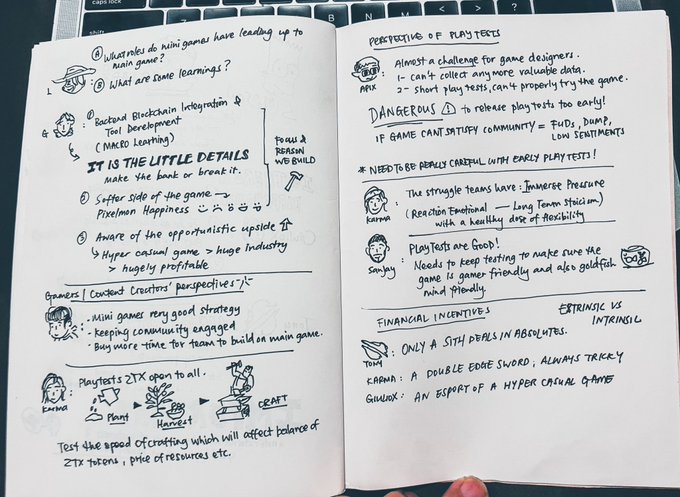 caps lock
A What roles do mini games have leading up to
main game?
L : B What are some learnings?
G : ① Backend Blockchain Integration &
Tool Development
(MACRO Learning)
IT IS THE LITTLE DETAILS
make the bank or break it.
② Softer side of the game →
Pixelmon Happiness
③ Aware of the opportunistic upside
↳ Hyper casual game > huge industry
> hugely profitable
FOCUS &
REASON
WE BUILD
Gamers / Content Creators' perspectives
: - Mini games very good strategy
- Keeping community engaged
- Buy more time for team to build on main game.
KARMA : Playtests ZTX open to all.
Plant
Harvest
CRAFT
Test the speed of crafting which will affect balance of
ZTX tokens, price of resources etc.
PERSPECTIVE OF PLAYTESTS
APIX : Almost a challenge for game designers.
1- can't collect any more valuable data.
2- short playtests, can't properly try the game.
DANGEROUS ! to release playtests too early!
IF GAME CANT SATISFY COMMUNITY = FUDS, DUMP,
LOW SENTIMENTS
* NEED TO BE REALLY CAREFUL WITH EARLY PLAYTESTS!
KARMA : The struggle teams have: Immerse Pressure
(Reaction Emotional — Long Term Stoicism)
with a healthy dose of flexibility
Sanjay : PLAYTESTS are GOOD!
Needs to keep testing to make sure the
game is gamer friendly and also goldfish
mind friendly.
FINANCIAL INCENTIVES
EXTRINSIC VS
INTRINSIC
TONY : ONLY A SITH DEALS IN ABSOLUTES.
KARMA : A DOUBLE EDGE SWORD, ALWAYS TRICKY
: AN ESPORT OF A HYPER CASUAL GAME